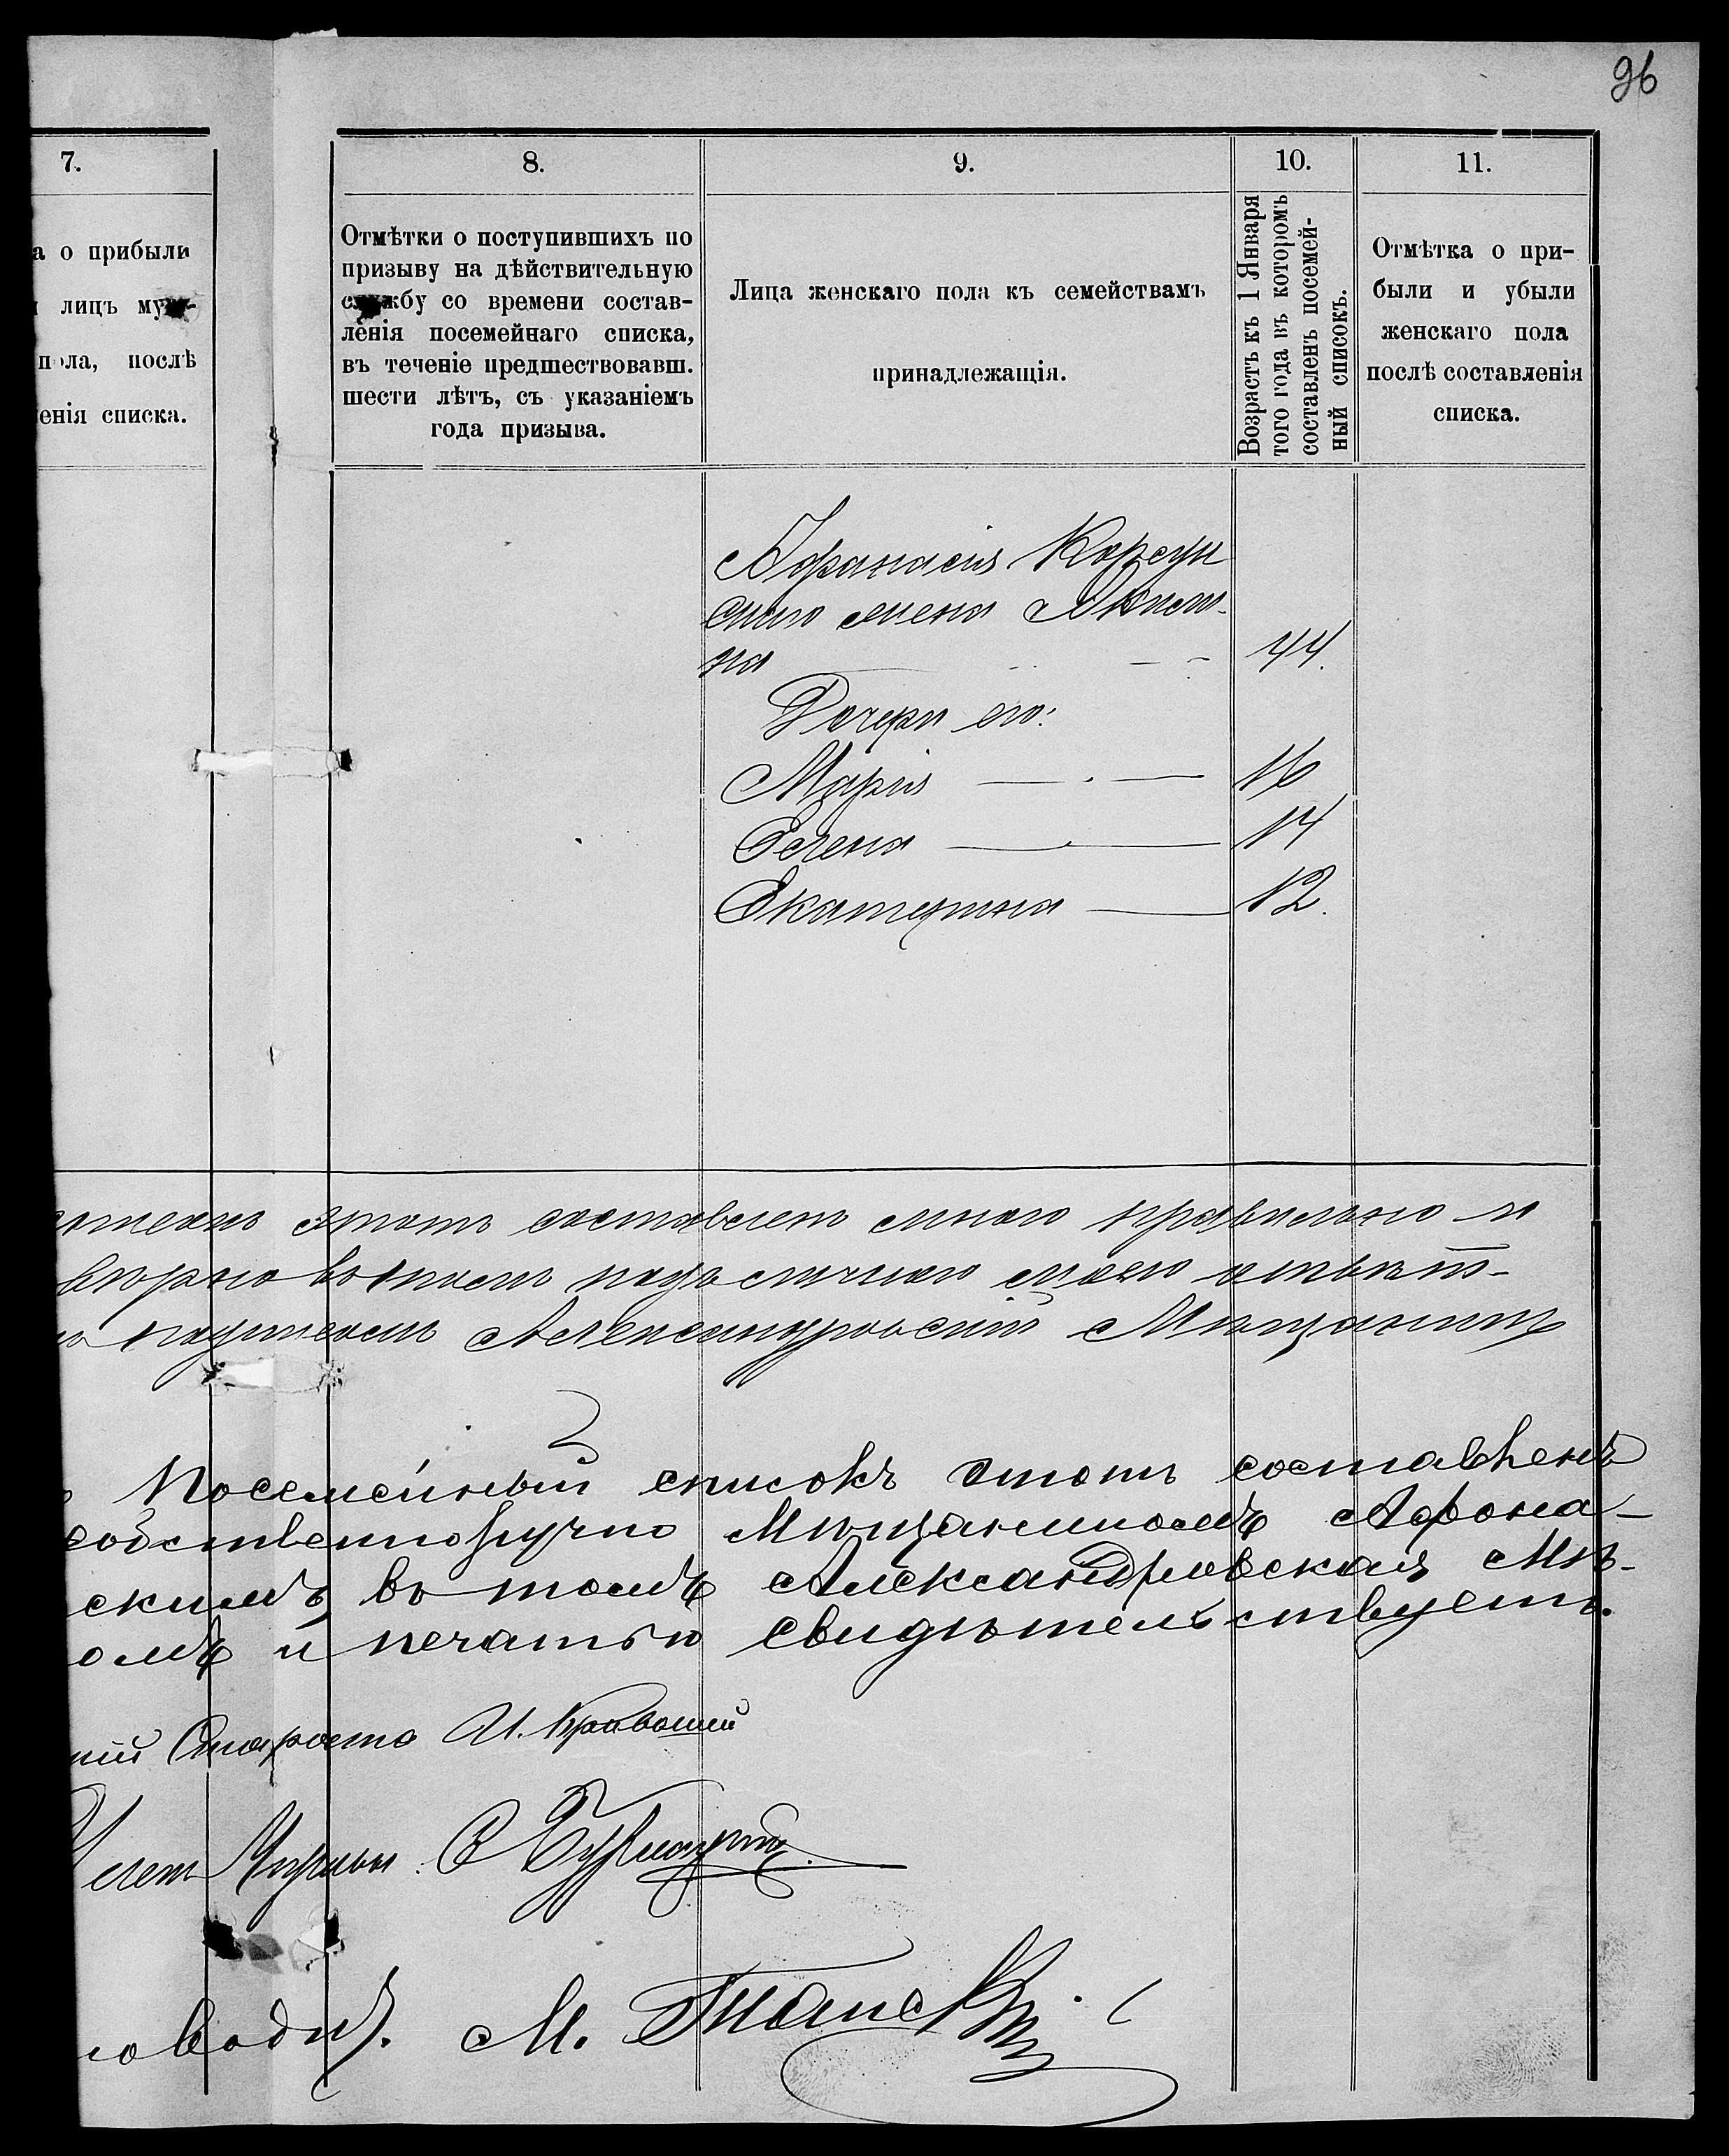 96
7.
8.
9.
10.
11.
а о прибыли
лицъ муж-
пола, послѣ
енія списка.
Отмѣтки о поступившихъ по
призыву на дѣйствительную
службу со времени состав-
ленія посемейнаго списка,
въ теченіе предшествовавш.
шести лѣтъ, съ указаніемъ
года призыва.
Лица женскаго пола къ семействамъ
принадлежащія.
Возрастъ къ 1 Января
того года въ которомъ
составленъ посемей-
ный списокъ.
Отмѣтка о при-
были и убыли
женскаго пола
послѣ составленія
списка.
Афанасія Корсун
скаго жена
на 44.
Дочери его:
Марія 16
Елена 14
Екатерина 12.
этотъ составленъ мною правильно и
вѣрно въ чемъ подъ личною моею отвѣт-
Александровскій Мѣщанинъ
Посемейный списокъ этотъ составленъ
собственноручно Мѣщаниномъ Афона-
скимъ, въ томъ Александровская Мѣ-
омъ и печатью свидѣтельствуетъ.
кій Староста И.
Членъ Управы:
оводи. М.